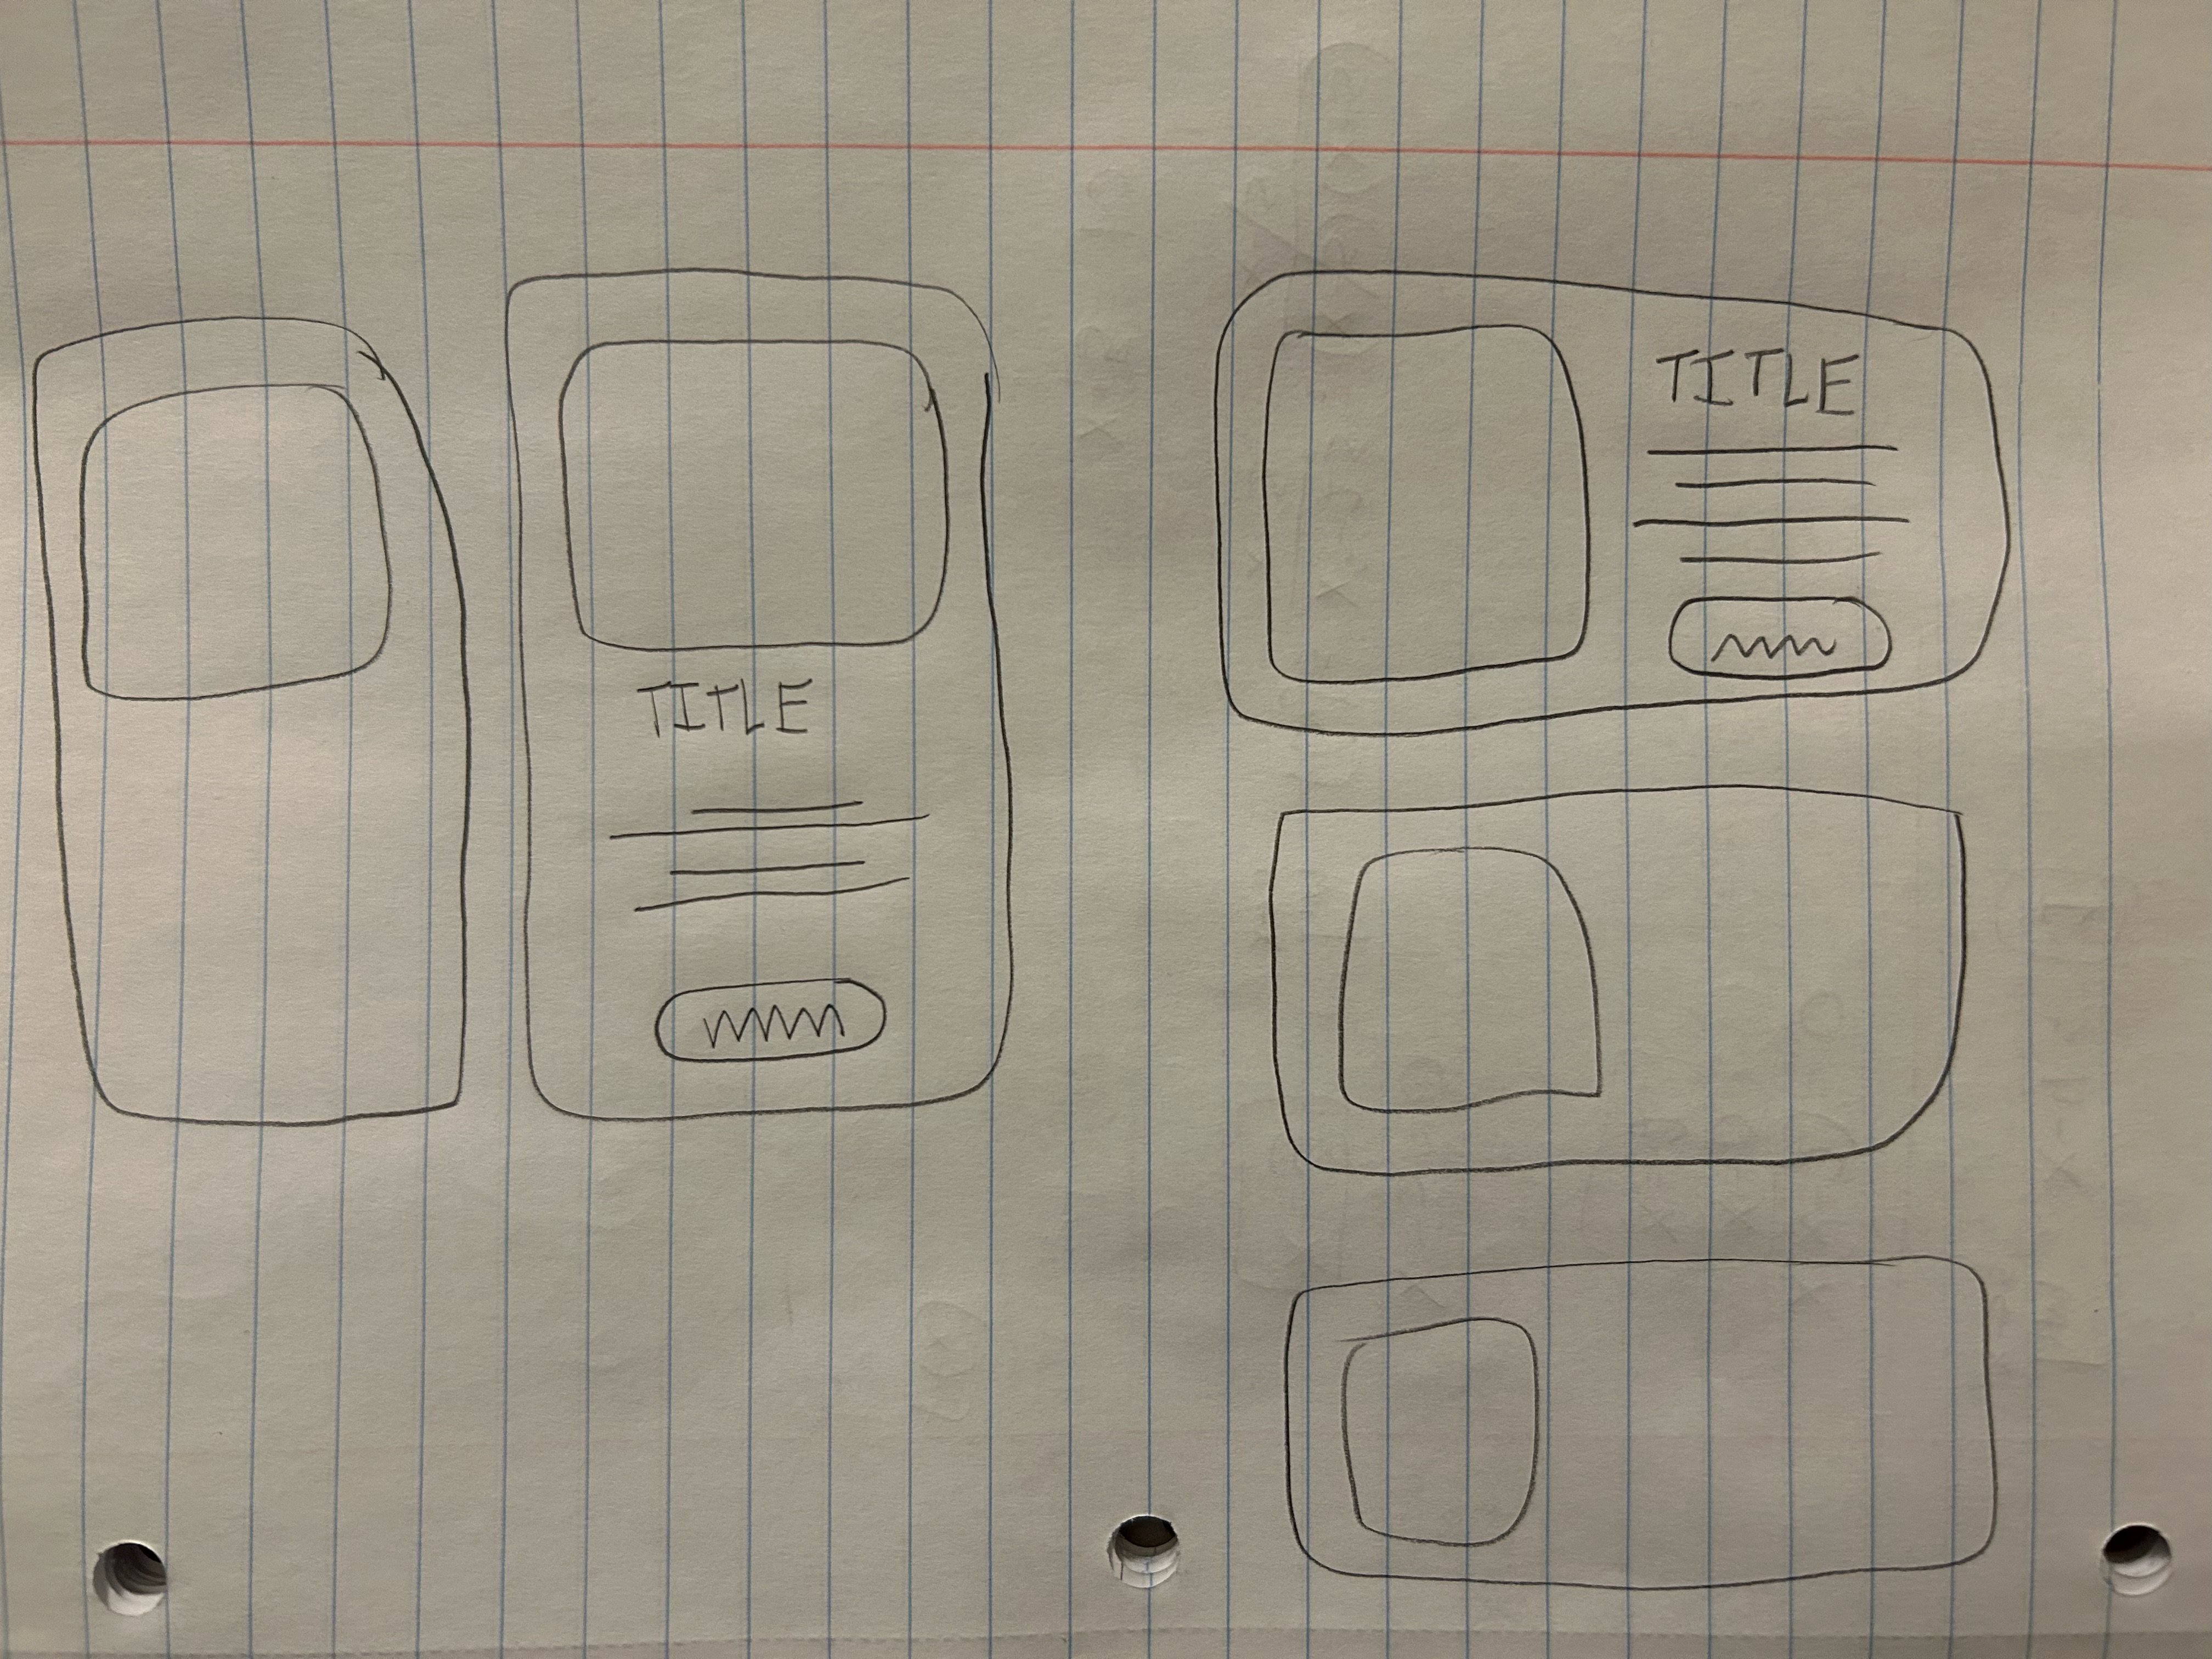 TITLE
TITLE